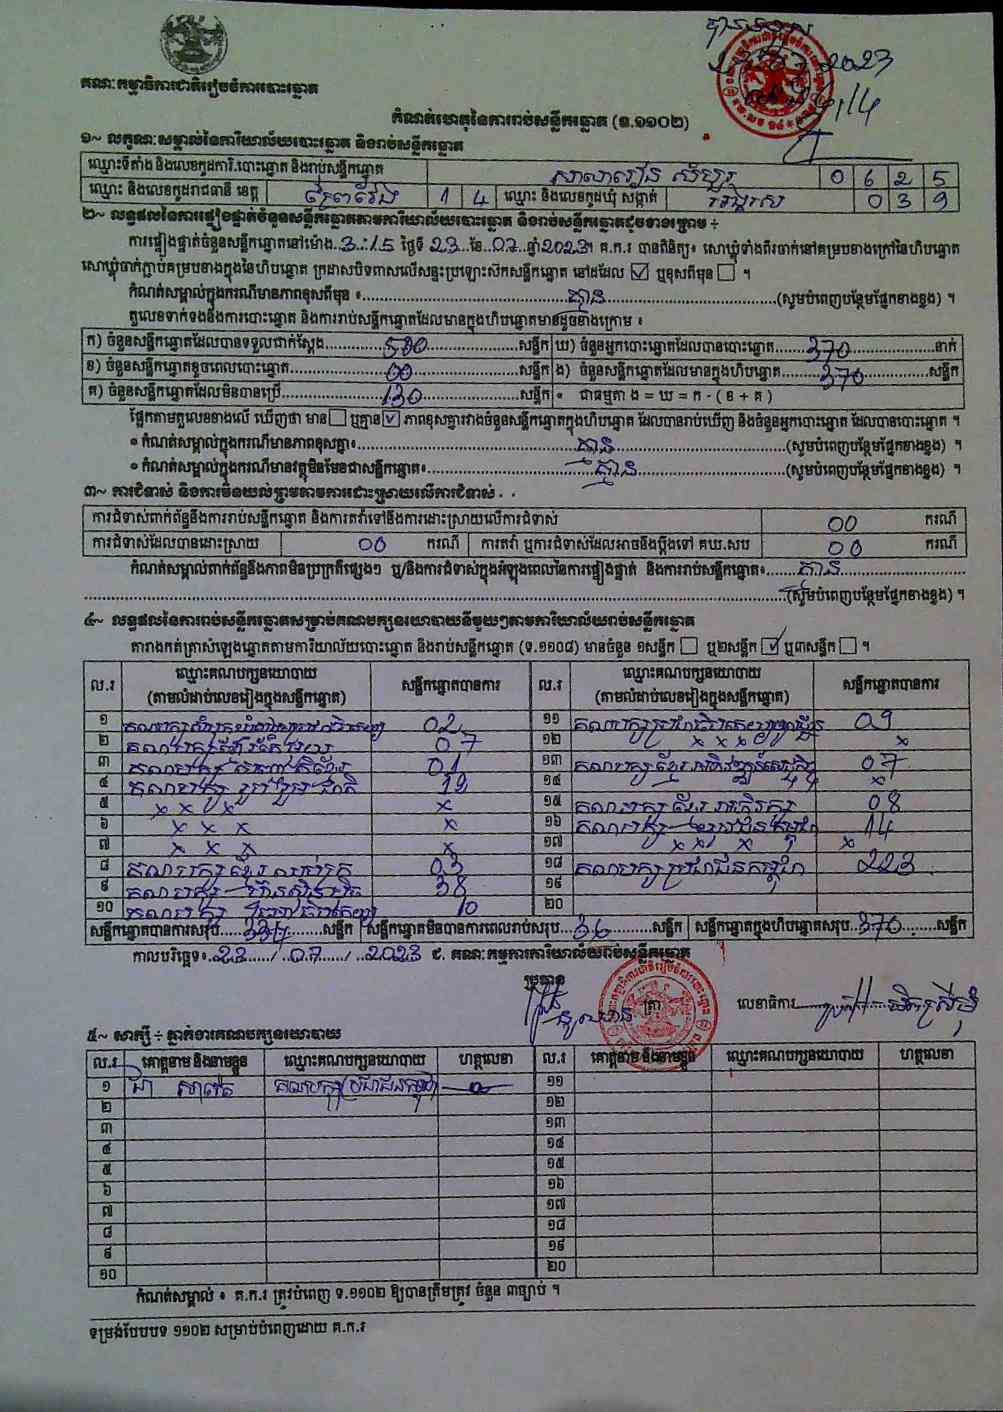 គណៈកម្មាធិការជាតិរៀបចំការបោះឆ្នោត
2023
កំណត់ហេតុនៃការរាប់សន្លឹកឆ្នោត (ទ.១១០២)
១~ លក្ខណៈសម្គាល់នៃការិយាល័យបោះឆ្នោត និងរាប់សន្លឹកឆ្នោត
ឈ្មោះទីតាំង និងលេខកូដការិ.បោះឆ្នោត និងរាប់សន្លឹកឆ្នោត 0 6 2 5
ឈ្មោះ និងលេខកូដរាជធានី ខេត្ត ព្រៃវែង 1 4 ឈ្មោះ និងលេខកូដឃុំ សង្កាត់ 0 3 9
២~ លទ្ធផលនៃការផ្ទៀងផ្ទាត់ចំនួនសន្លឹកឆ្នោតតាមការិយាល័យបោះឆ្នោត និងរាប់សន្លឹកឆ្នោតដូចខាងក្រោម ÷
ការផ្ទៀងផ្ទាត់ចំនួនសន្លឹកឆ្នោតនៅម៉ោង 3:15 ថ្ងៃទី 23 ខែ 07 ឆ្នាំ 2023។ គ.ក.រ បានពិនិត្យ៖ សោឃ្លុំទាំងពីរចាក់នៅគម្របខាងក្រៅនៃហិបឆ្នោត
សោឃ្លុំចាក់ភ្ជាប់គម្របខាងក្នុងនៃហិបឆ្នោត ក្រដាសបិទពាសលើសន្ទះប្រឡោះស៊កសន្លឹកឆ្នោត នៅដដែល ☑ ឬខុសពីមុន ☐ ។
កំណត់សម្គាល់ក្នុងករណីមានភាពខុសពីមុន ៖ គ្មាន (សូមបំពេញបន្ថែមផ្នែកខាងខ្នង) ។
តួលេខទាក់ទងនឹងការបោះឆ្នោត និងការរាប់សន្លឹកឆ្នោតដែលមានក្នុងហិបឆ្នោតមានដូចខាងក្រោម ៖
ក) ចំនួនសន្លឹកឆ្នោតដែលបានទទួលជាក់ស្ដែង 500 សន្លឹក ឃ) ចំនួនអ្នកបោះឆ្នោតដែលបានបោះឆ្នោត 370 នាក់
ខ) ចំនួនសន្លឹកឆ្នោតខូចពេលបោះឆ្នោត 00 សន្លឹក ង) ចំនួនសន្លឹកឆ្នោតដែលមានក្នុងហិបឆ្នោត 370 សន្លឹក
គ) ចំនួនសន្លឹកឆ្នោតដែលមិនបានប្រើ 130 សន្លឹក • ជាធម្មតា ង = ឃ = ក - ( ខ + គ )
ផ្អែកតាមតួលេខខាងលើ ឃើញថា មាន ☐ ឬគ្មាន ☑ ភាពខុសគ្នារវាងចំនួនសន្លឹកឆ្នោតក្នុងហិបឆ្នោត ដែលបានរាប់ឃើញ និងចំនួនអ្នកបោះឆ្នោត ដែលបានបោះឆ្នោត ។
• កំណត់សម្គាល់ក្នុងករណីមានភាពខុសគ្នា៖ គ្មាន (សូមបំពេញបន្ថែមផ្នែកខាងខ្នង) ។
• កំណត់សម្គាល់ក្នុងករណីមានវត្ថុមិនមែនជាសន្លឹកឆ្នោត៖ គ្មាន (សូមបំពេញបន្ថែមផ្នែកខាងខ្នង) ។
៣~ ការជំទាស់ និងការមិនយល់ព្រមតាមការដោះស្រាយលើការជំទាស់
ការជំទាស់ពាក់ព័ន្ធនឹងការរាប់សន្លឹកឆ្នោត និងការតវ៉ាទៅនឹងការដោះស្រាយលើការជំទាស់ 00 ករណី
ការជំទាស់ដែលបានដោះស្រាយ 00 ករណី ការតវ៉ា ឬការជំទាស់ដែលអាចនឹងប្ដឹងទៅ គឃ.សប 00 ករណី
កំណត់សម្គាល់ពាក់ព័ន្ធនឹងភាពមិនប្រក្រតីផ្សេងៗ ឬ/និងការជំទាស់ក្នុងអំឡុងពេលនៃការផ្ទៀងផ្ទាត់ និងការរាប់សន្លឹកឆ្នោត៖ គ្មាន
(សូមបំពេញបន្ថែមផ្នែកខាងខ្នង) ។
៤~ លទ្ធផលនៃការរាប់សន្លឹកឆ្នោតសម្រាប់គណបក្សនយោបាយនីមួយៗតាមការិយាល័យរាប់សន្លឹកឆ្នោត
តារាងកត់ត្រាសំឡេងឆ្នោតតាមការិយាល័យបោះឆ្នោត និងរាប់សន្លឹកឆ្នោត (ទ.១១០៨) មានចំនួន ១សន្លឹក ☐ ឬ២សន្លឹក ☑ ឬ៣សន្លឹក ☐ ។
ល.រ ឈ្មោះគណបក្សនយោបាយ (តាមលំដាប់លេខរៀងក្នុងសន្លឹកឆ្នោត) សន្លឹកឆ្នោតបានការ ល.រ ឈ្មោះគណបក្សនយោបាយ (តាមលំដាប់លេខរៀងក្នុងសន្លឹកឆ្នោត) សន្លឹកឆ្នោតបានការ
១ 02 ១១ 09
២ 07 ១២ x x x x
៣ 01 ១៣ 07
៤ គណបក្ស រួបរួមជាតិ 12 ១៤ x
៥ x x x x x ១៥ 08
៦ x x x x ១៦ 14
៧ x x x x ១៧ x x x x
៨ 03 ១៨ គណបក្សប្រជាជនកម្ពុជា 223
៩ គណបក្ស ហ៊្វុនស៊ិនប៉ិច 38 ១៩
១០ 10 ២០
សន្លឹកឆ្នោតបានការសរុប 334 សន្លឹក សន្លឹកឆ្នោតមិនបានការពេលរាប់សរុប 36 សន្លឹក សន្លឹកឆ្នោតក្នុងហិបឆ្នោតសរុប 370 សន្លឹក
កាលបរិច្ឆេទ៖ 23 / 07 / 2023 ជ. គណៈកម្មការការិយាល័យរាប់សន្លឹកឆ្នោត
ប្រធាន
ត្រា លេខាធិការ
៥~ សាក្សី ÷ ភ្នាក់ងារគណបក្សនយោបាយ
ល.រ គោត្តនាម និងនាមខ្លួន ឈ្មោះគណបក្សនយោបាយ ហត្ថលេខា ល.រ គោត្តនាម និងនាមខ្លួន ឈ្មោះគណបក្សនយោបាយ ហត្ថលេខា
១ គណបក្សប្រជាជនកម្ពុជា ១១
២ ១២
៣ ១៣
៤ ១៤
៥ ១៥
៦ ១៦
៧ ១៧
៨ ១៨
៩ ១៩
១០ ២០
កំណត់សម្គាល់ ៖ គ.ក.រ ត្រូវបំពេញ ទ.១១០២ ឱ្យបានត្រឹមត្រូវ ចំនួន ៣ច្បាប់ ។
ទម្រង់បែបបទ ១១០២ សម្រាប់បំពេញដោយ គ.ក.រ